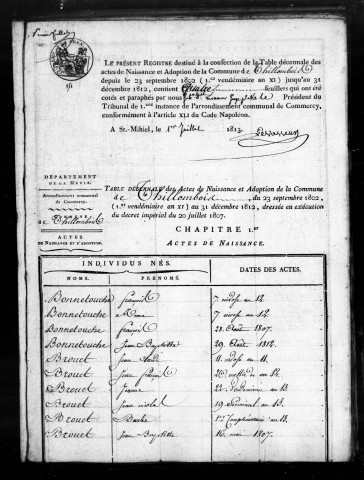 LE PRÉSENT REGISTRE destiné à la confection de la Table décennale des
actes de Naissance et Adoption de la Commune de Thillombois
depuis le 23 septembre 1802 (1.er vendémiaire an XI) jusqu'au 31
décembre 1812, contient quatre feuillets qui ont été
cotés et paraphés par nous Président du
Tribunal de 1.ere instance de l'arrondissement communal de Commercy,
conformément à l'article XLI du Code Napoléon.
A St.-Mihiel, le 1er Juillet 1813.
DÉPARTEMENT
DE LA MEUSE.
Arrondissement communal
de Commercy.
de Thillombois
ACTES
DE NAISSANCE ET D'ADOPTION.
TABLE DÉCENNALE des Actes de Naissance et Adoption de la Commune
de Thillombois, du 23 septembre 1802,
(1.er vendémiaire an XI) au 31 décembre 1812, dressée en exécution
du décret impérial du 20 juillet 1807.
CHAPITRE I.er
ACTES DE NAISSANCE.
INDIVIDUS NÉS.
NOMS. PRÉNOMS. DATES DES ACTES.
Bonnetouche françois 7 nivose an 12.
Bonnetouche 7 nivose an 12.
Bonnetouche françois 28 Août 1807.
Bonnetouche Jean Baptiste 29 Août 1812.
Brouet Jean 11 nivose an 11.
Brouet Jean an 12.
Brouet Jeanne 22 Vendémiaire an 13.
Brouet Jean nicolas 19 Germinal an 13.
Brouet Barbe 1er Complémentaire an 11.
Brouet Jean Baptiste 16 mai 1807.